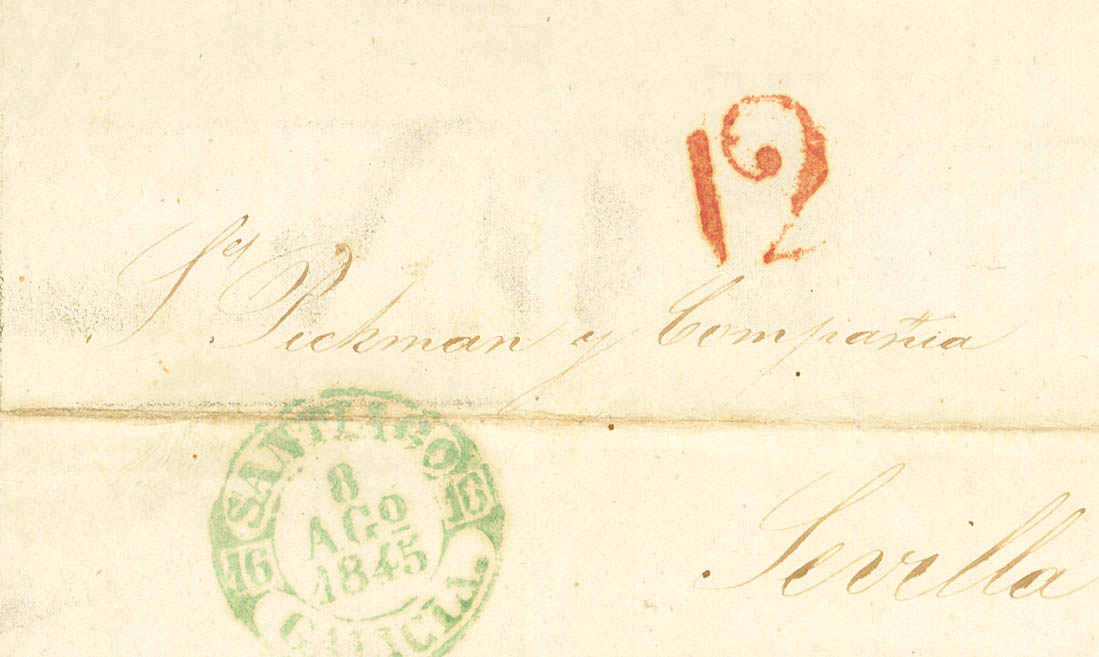 12
Sʳ Pickman y Compañia
SANTIAGO
8
AGº
1845
16
16
GALICIA.
Sevilla